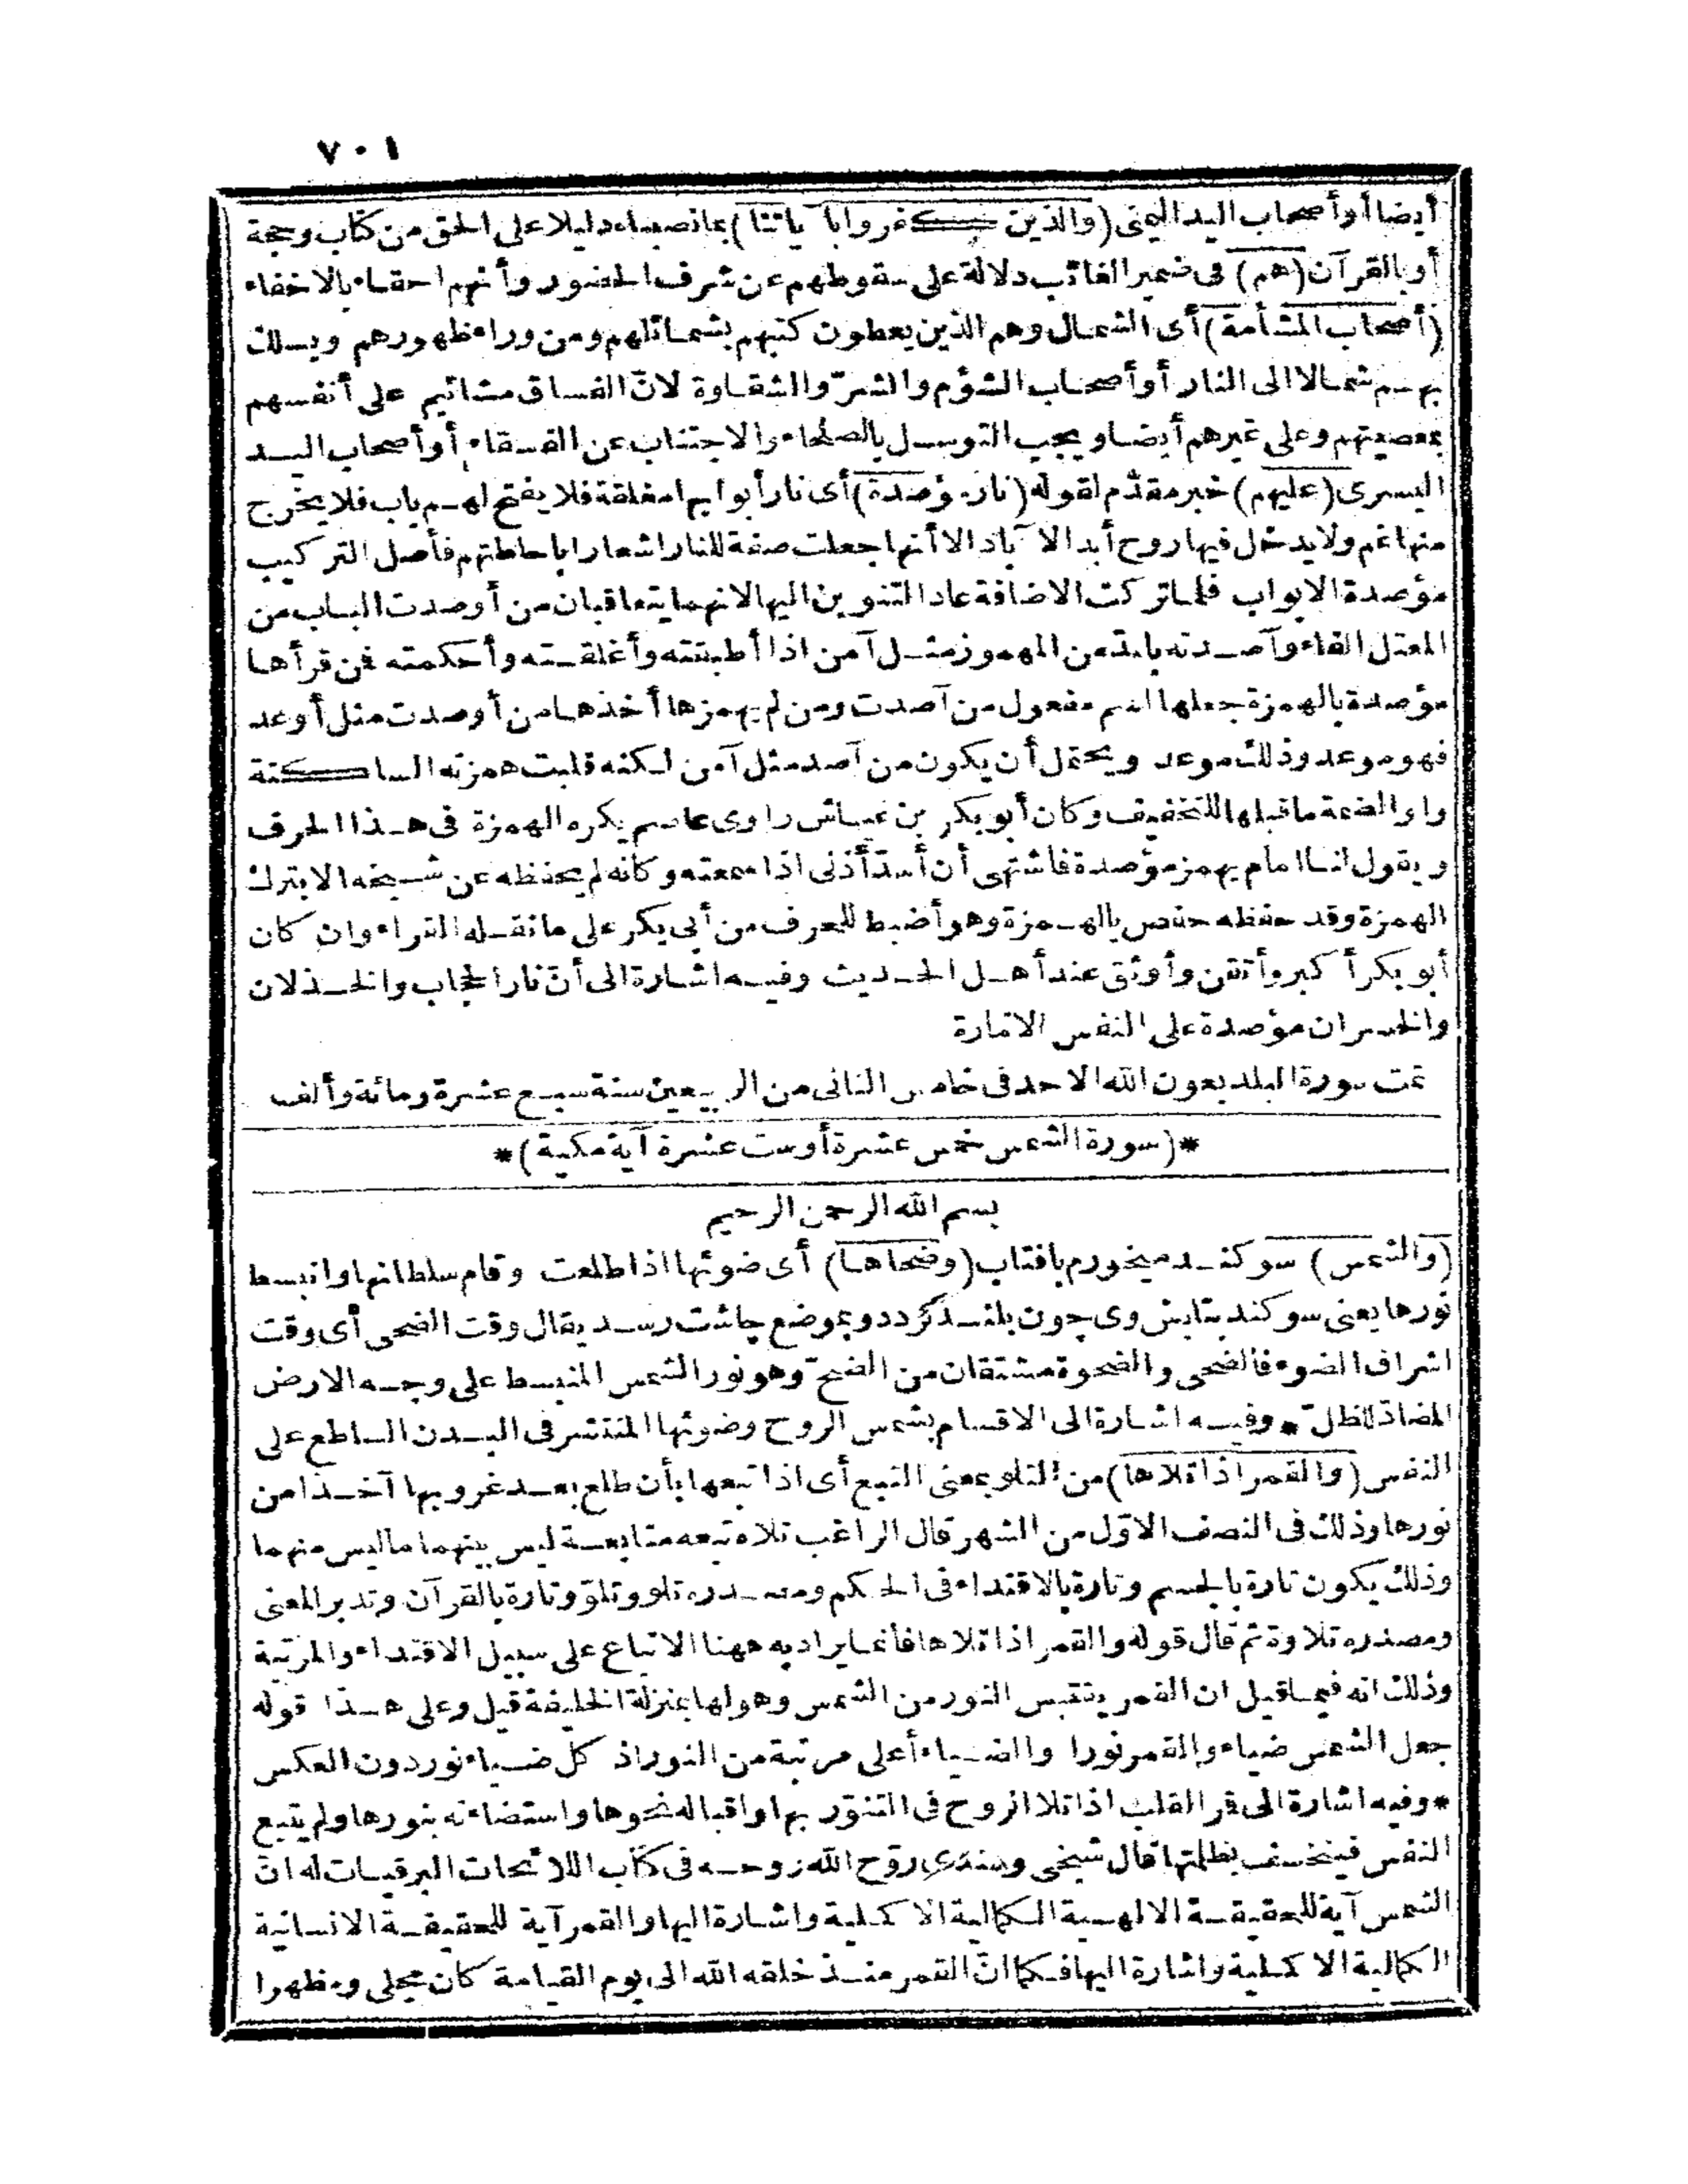 ٧٠١
أيضا أو أصحاب اليد اليمنى (والذين كفروا بآياتنا) بما نصبناه دليلا على الحق من كتاب وحجة
أو بالقرآن (هم) فى ضمير الغائب دلالة على سقوطهم عن شرف الحضور وأنهم احقاء بالاخفاء
(أصحاب المشأمة) أى الشمال وهم الذين يعطون كتبهم بشمائلهم ومن وراء ظهورهم ويسلك
بهم شمالا الى النار أو أصحاب الشؤم والشرّ والشقاوة لانّ الفساق مشائيم على أنفسهم
بمعصيتهم وعلى غيرهم أيضا ويجب التوسل بالصلحاء والاجتناب عن الفسقاء أو أصحاب اليد
اليسرى (عليهم) خبر مقدّم لقوله (نار مؤصدة) أى نار أبوابها مغلقة فلا يفتح لهم باب فلا يخرج
منها غم ولا يدخل فيها روح أبد الآباد الا أنها جعلت صفة للنار اشعارا باحاطتهم فأصل التركيب
مؤصدة الابواب فلما تركت الاضافة عاد التنوين اليها لانهما يتعاقبان من أوصدت الباب من
المعتل الفاء وآصدته بالمدّ من المهموز مثل آمن اذا أطبقته وأغلقته وأحكمته فمن قرأها
مؤصدة بالهمزة جعلها اسم مفعول من آصدت ومن لم يهمزها أخذها من أوصدت مثل أوعد
فهو موعد وذلك موعد ويحتمل أن يكون من آصد مثل آمن لكنه قلبت همزته الساكنة
واوا لضمة ما قبلها للتخفيف وكان أبو بكر بن عياش راوى عاصم يكره الهمزة فى هذا الحرف
ويقول لنا امام يهمز مؤصدة فاشتهى أن أسدّ أذنى اذا سمعته وكأنه لم يحفظه عن شيخه الا بترك
الهمزة وقد حفظه حفص بالهمزة وهو أضبط للحرف من أبى بكر على ما نقله القراء وان كان
أبو بكر أكبر وأتقن وأوثق عند أهل الحديث وفيه اشارة الى أنّ نار الحجاب والخذلان
والخسران مؤصدة على النفس الامّارة
تمت سورة البلد بعون الله الاحد فى خامس الثانى من الربيعين سنة سبع عشرة ومائة وألف
*(سورة الشمس خمس عشرة أو ست عشرة آية مكية)*
بسم الله الرحمن الرحيم
(والشمس) سوكند ميخورم بافتاب (وضحاها) أى ضوئها اذا طلعت وقام سلطانها وانبسط
نورها يعنى سوكند بتابش وى چون بلند كردد وبموضع چاشت رسد يقال وقت الضحى أى وقت
اشراف الضوء فالضحى والضحوة مشتقان من الضحّ وهو نور الشمس المنبسط على وجه الارض
المضادّ للظلّ * وفيه اشارة الى الاقسام بشمس الروح وضوئها المنتشر فى البدن الساطع على
النفس (والقمر اذا تلاها) من التلو بمعنى التبع أى اذا تبعها بأن طلع بعد غروبها آخذا من
نورها وذلك فى النصف الاوّل من الشهر قال الراغب تلاه تبعه متابعة ليس بينهما ما ليس منهما
وذلك يكون تارة بالجسم وتارة بالاقتداء فى الحكم ومصدره تلو وتلوّ وتارة بالقرآن وتدبر المعنى
ومصدره تلاوة ثم قال قوله والقمر اذا تلاها فانما يراد به ههنا الاتباع على سبيل الاقتداء والمرتبة
وذلك انه فيما قيل ان القمر يقتبس النور من الشمس وهو لها بمنزلة الخليفة قيل وعلى هذا قوله
جعل الشمس ضياء والقمر نورا والضياء أعلى مرتبة من النور اذ كل ضياء نور دون العكس
* وفيه اشارة الى قمر القلب اذا تلا الروح فى التنوّر بها واقباله نحوها واستضاءته بنورها ولم يتبع
النفس فينخسف بظلمتها قال شيخى وسندى روّح الله روحه فى كتاب اللائحات البرقيات له انّ
الشمس آية للحقيقة الالهية الكمالية الاكملية واشارة اليها والقمر آية للحقيقة الانسانية
الكمالية الاكملية واشارة اليها فكما انّ القمر منذ خلقه الله الى يوم القيامة كان مجلى ومظهرا